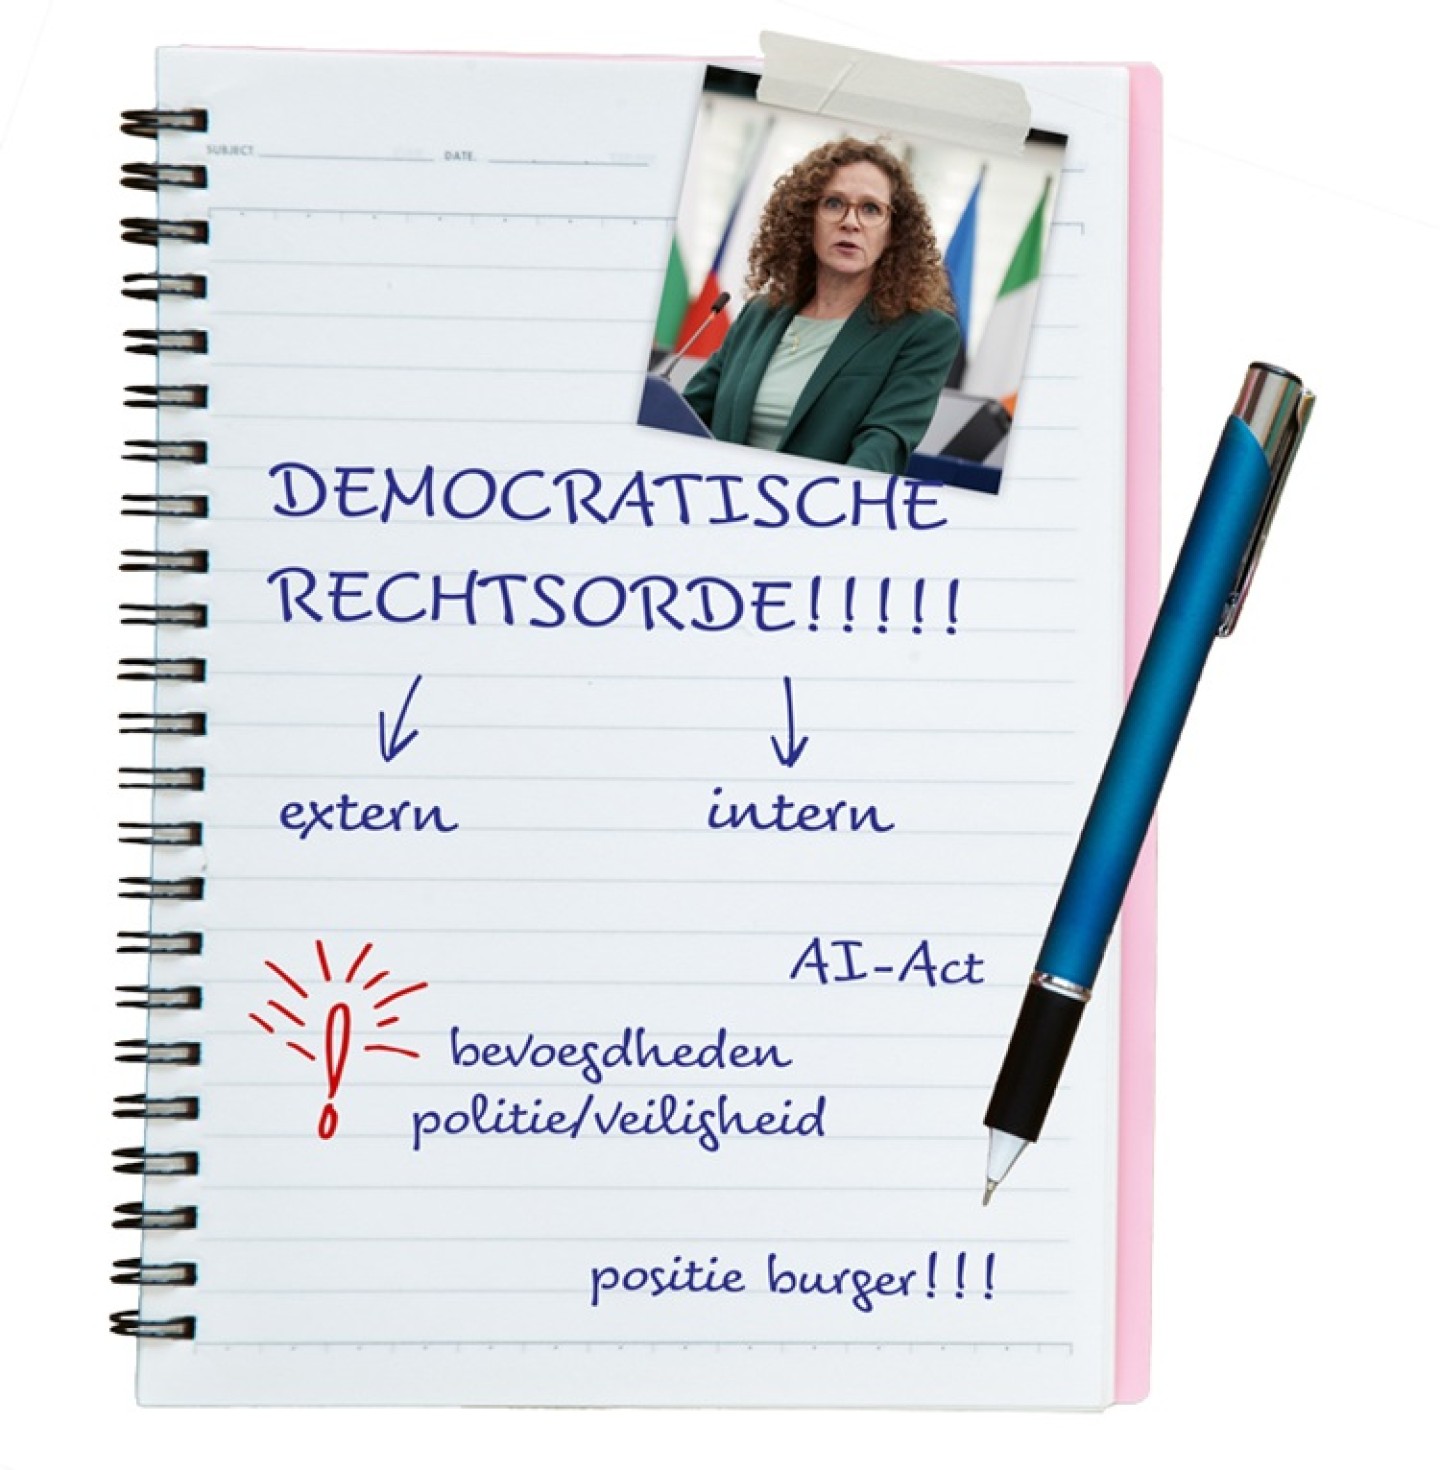 SUBJECT. DATE.
DEMOCRATISCHE
RECHTSORDE!!!!!
extern intern
AI-Act
bevoegdheden
politie/veiligheid
positie burger!!!